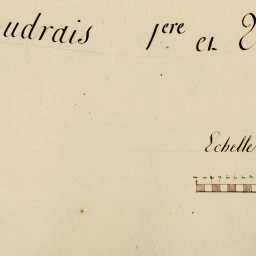 oudrais 1ere et 2
Echelle